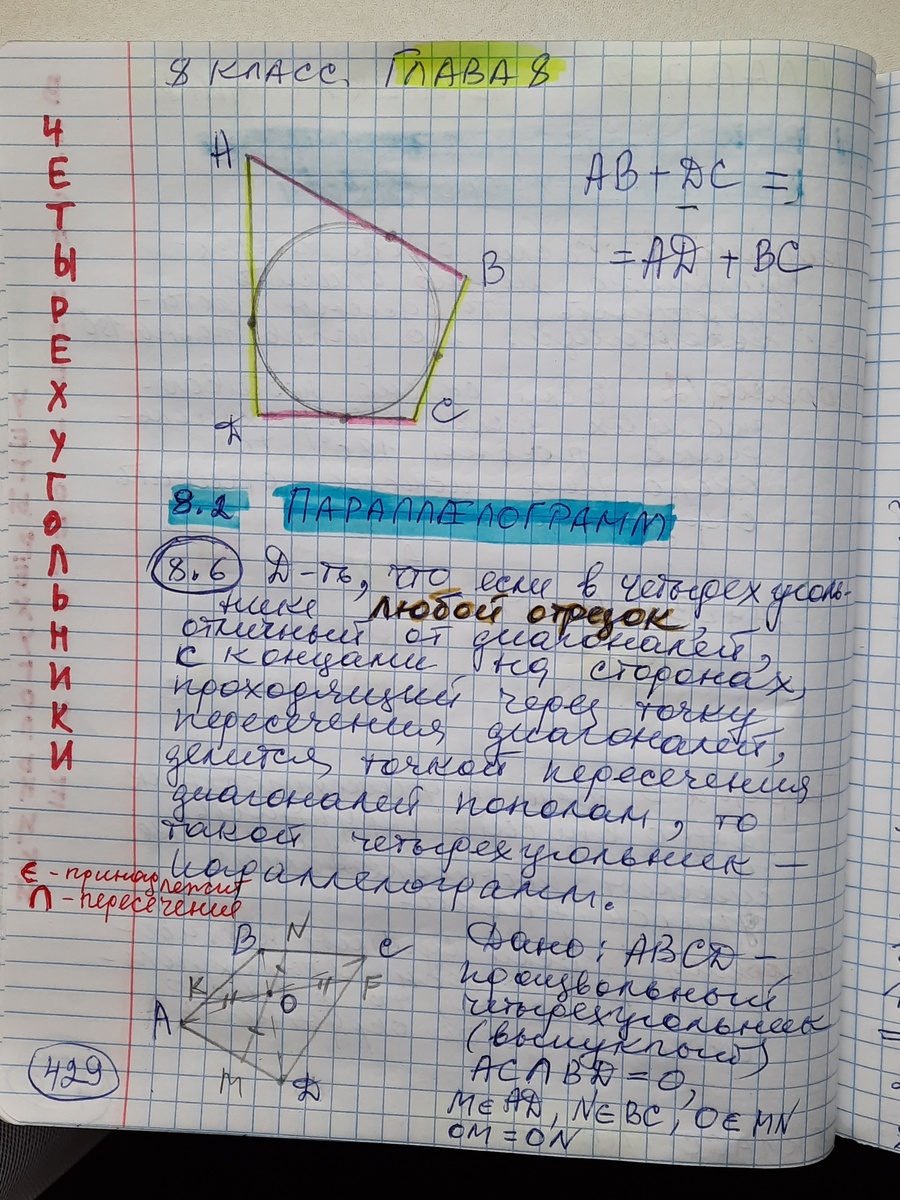 8 КЛАСС. ГЛАВА 8
ЧЕТЫРЕХУГОЛЬНИКИ
A
B
C
D
AB + DC =
= AD + BC
8.2 ПАРАЛЛЕЛОГРАММ
8.6 Д-ть, что если в четырехуголь-
нике любой отрезок,
отличный от диагоналей,
с концами на сторонах,
проходящий через точку
пересечения диагоналей,
делится точкой пересечения
диагоналей пополам, то
такой четырехугольник –
параллелограмм.
∈ - принадлежит
∩ - пересечение
B N C
K O F
A
M D
429
Дано: ABCD –
произвольный
четырехугольник
(выпуклый)
AC∩BD = O,
M∈AD, N∈BC, O∈MN
OM = ON